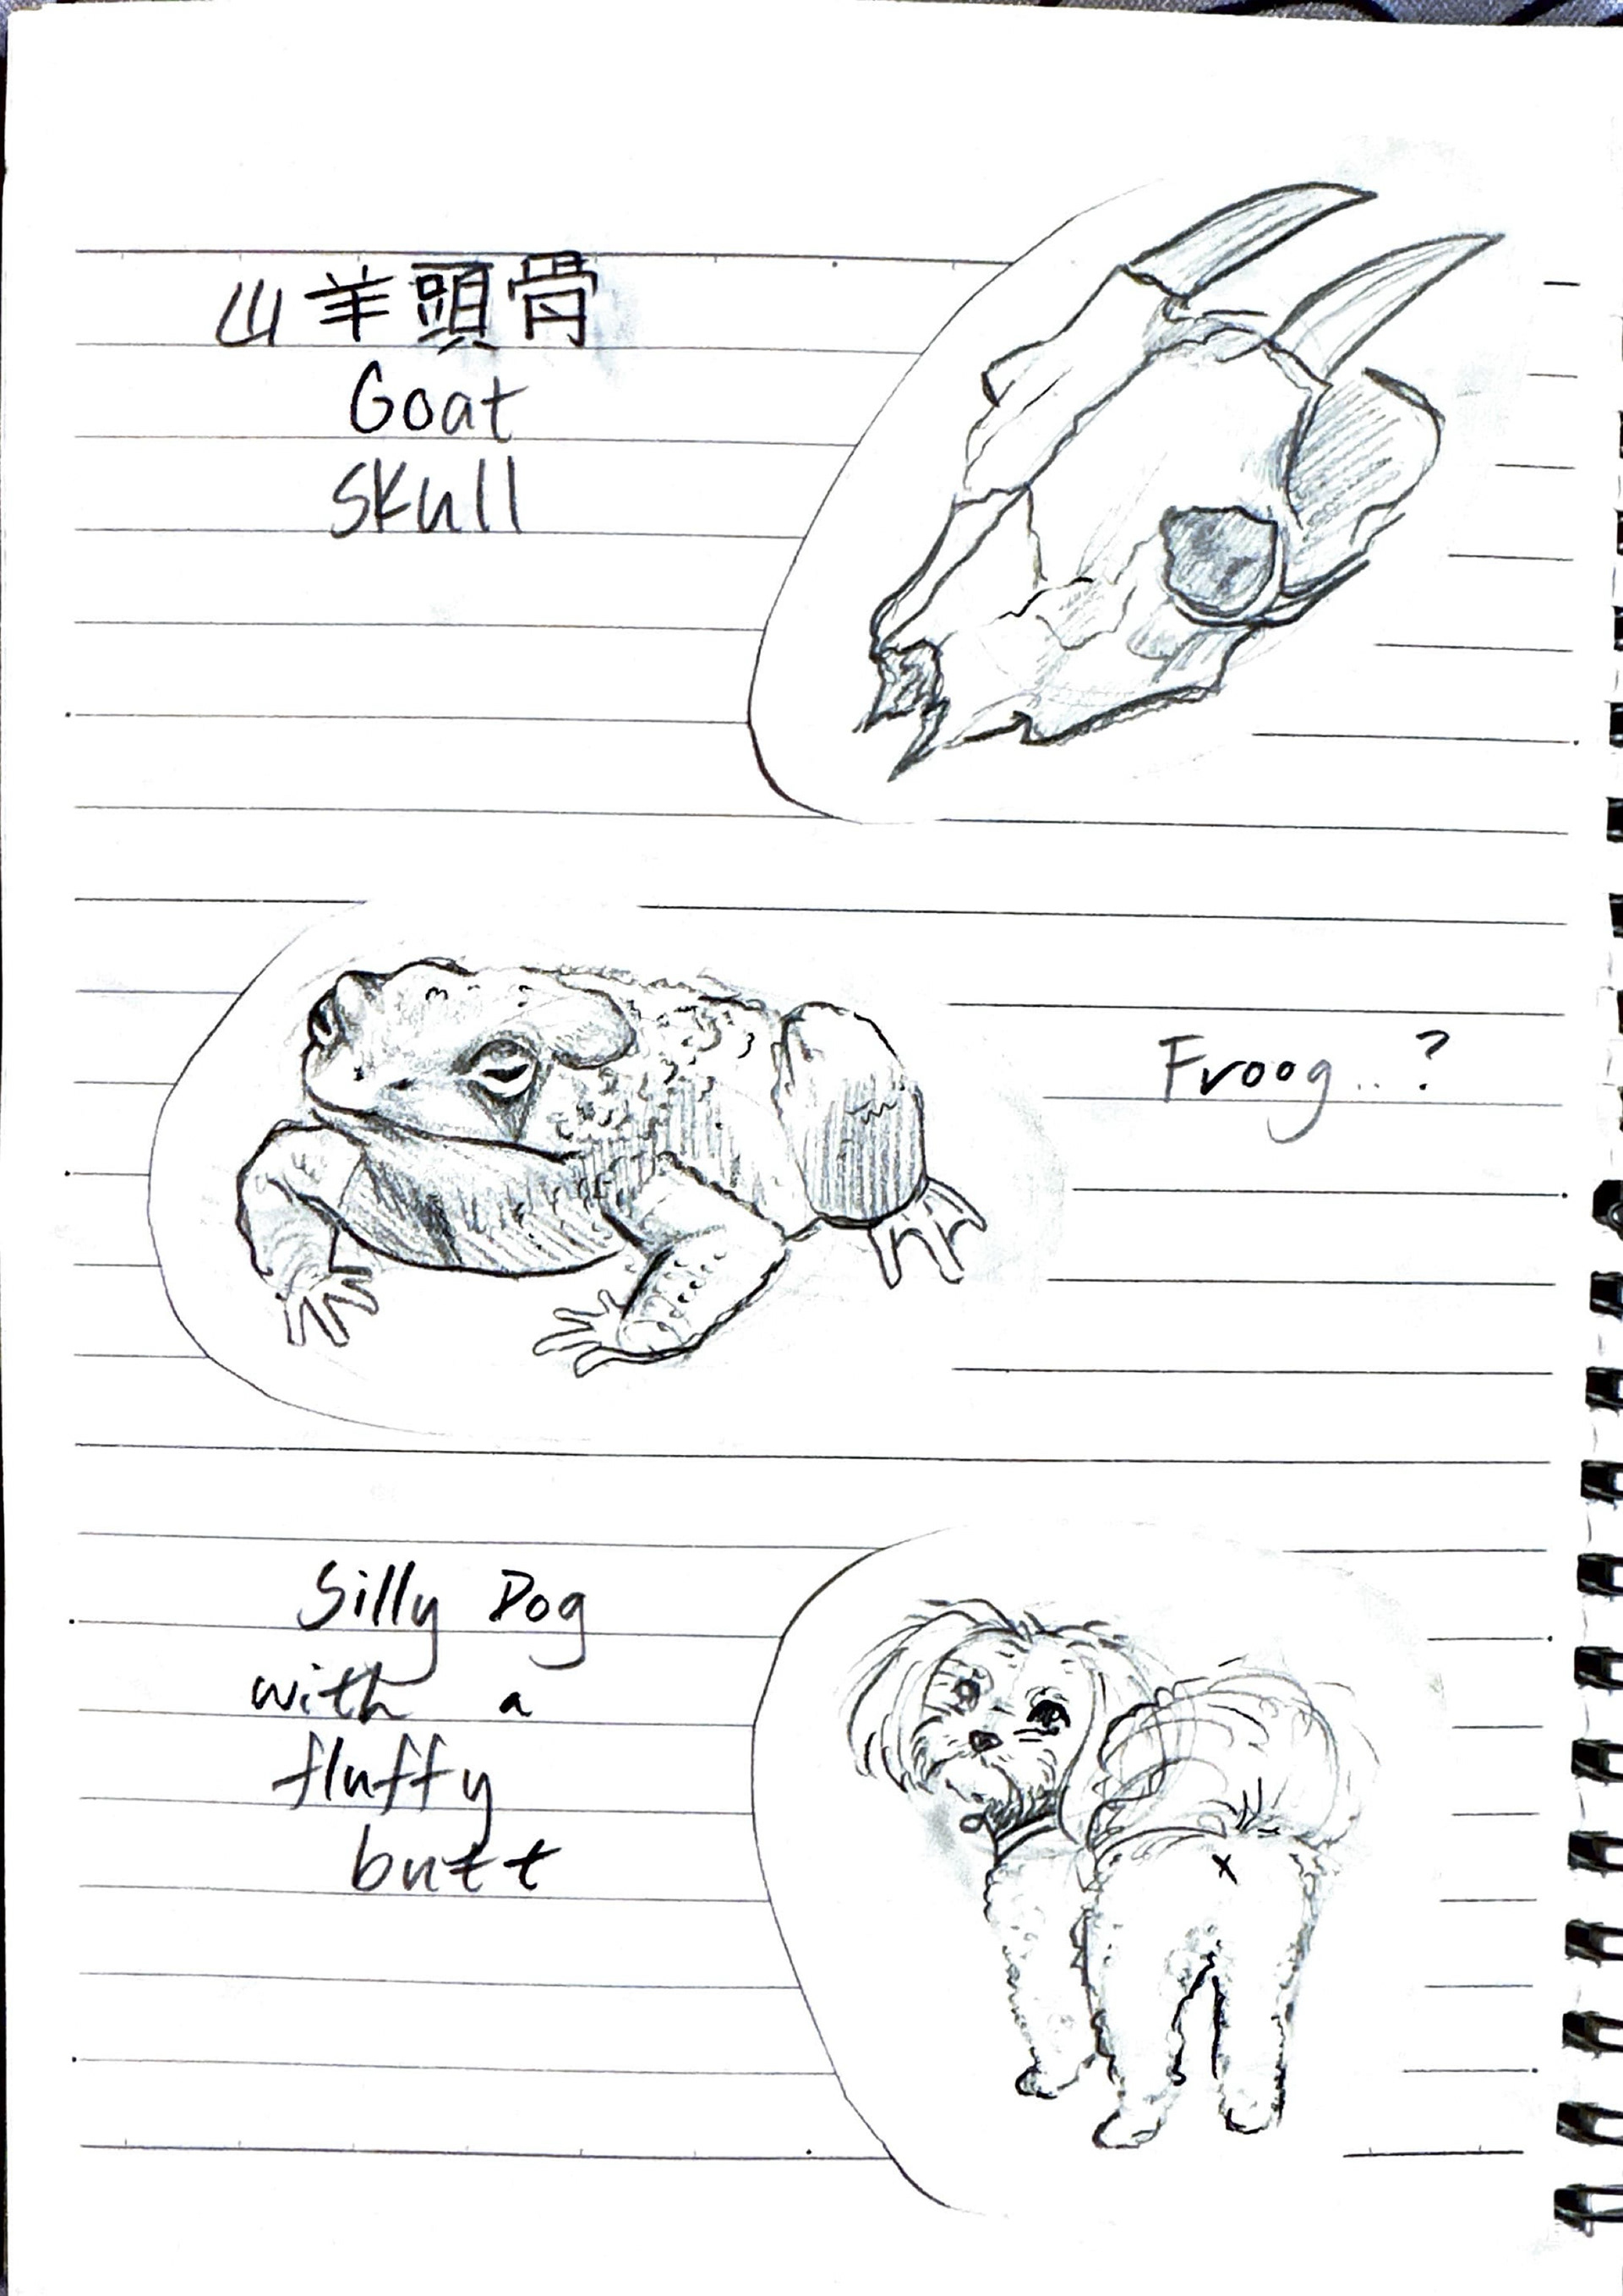 山羊頭骨
Goat
Skull
Froog...?
Silly Dog
with a
fluffy
butt